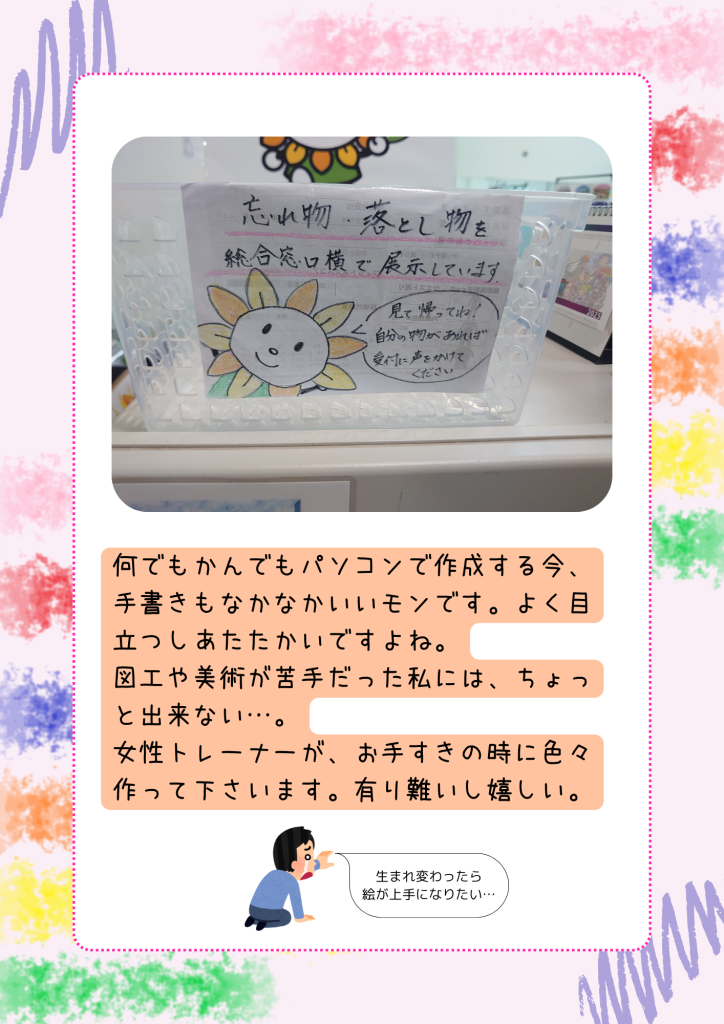 忘れ物・落とし物を
総合窓口横で展示しています
見て帰ってね！
自分の物があれば
受付に声をかけて
ください
2023
何でもかんでもパソコンで作成する今、
手書きもなかなかいいモンです。よく目
立つしあたたかいですよね。
図工や美術が苦手だった私には、ちょっ
と出来ない…。
女性トレーナーが、お手すきの時に色々
作って下さいます。有り難いし嬉しい。
生まれ変わったら
絵が上手になりたい…